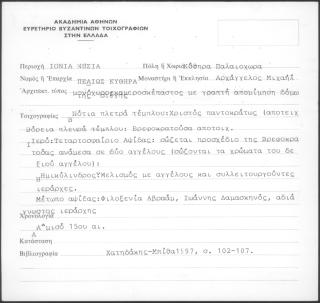 ΑΚΑΔΗΜΙΑ ΑΘΗΝΩΝ
ΕΥΡΕΤΗΡΙΟ ΒΥΖΑΝΤΙΝΩΝ ΤΟΙΧΟΓΡΑΦΙΩΝ
ΣΤΗΝ ΕΛΛΑΔΑ
Περιοχή ΙΟΝΙΑ ΝΗΣΙΑ Πόλη ἢ Χωριό Κύθηρα Παλαιοχώρα
Νομός ἢ Ἐπαρχία ΠΕΛΙΟΣ ΚΥΘΗΡΑ Μοναστήρι ἢ Ἐκκλησία Αρχάγγελος Μιχαήλ
Ἀρχιτεκτ. τύπος μονόχωρος καμαροσκέπαστος με γραπτή απομίμηση δόμω
της
Τοιχογραφίες Νότια πλευρά τέμπλου:Χριστός παντοκράτως (αποτειχ
Βόρεια πλευρά τέμπλου: Βρεφοκρατούσα αποτοιχ.
Ιερό:Τεταρτοσφαίριο Αψίδας: σώζεται προσχέδιο της Βρεφοκρα
τούσας ανάμεσα σε δύο αγγέλους (σώζονται τα χρώματα του δε
ξιού αγγέλου):
Ημικύλινδρος:Μελισμός με αγγέλους και συλλειτουργούντες
ιεράρχες.
Μέτωπο αψίδας:Φιλοξενία Αβραάμ, Ιωάννης Δαμασκηνός, αδιά
γνωστος ιεράρχης
Χρονολογία
Α΄μισό 15ου αι.
Κατάσταση
Βιβλιογραφία Χατηδάκης-Μπίθα1997, σ. 102-107.